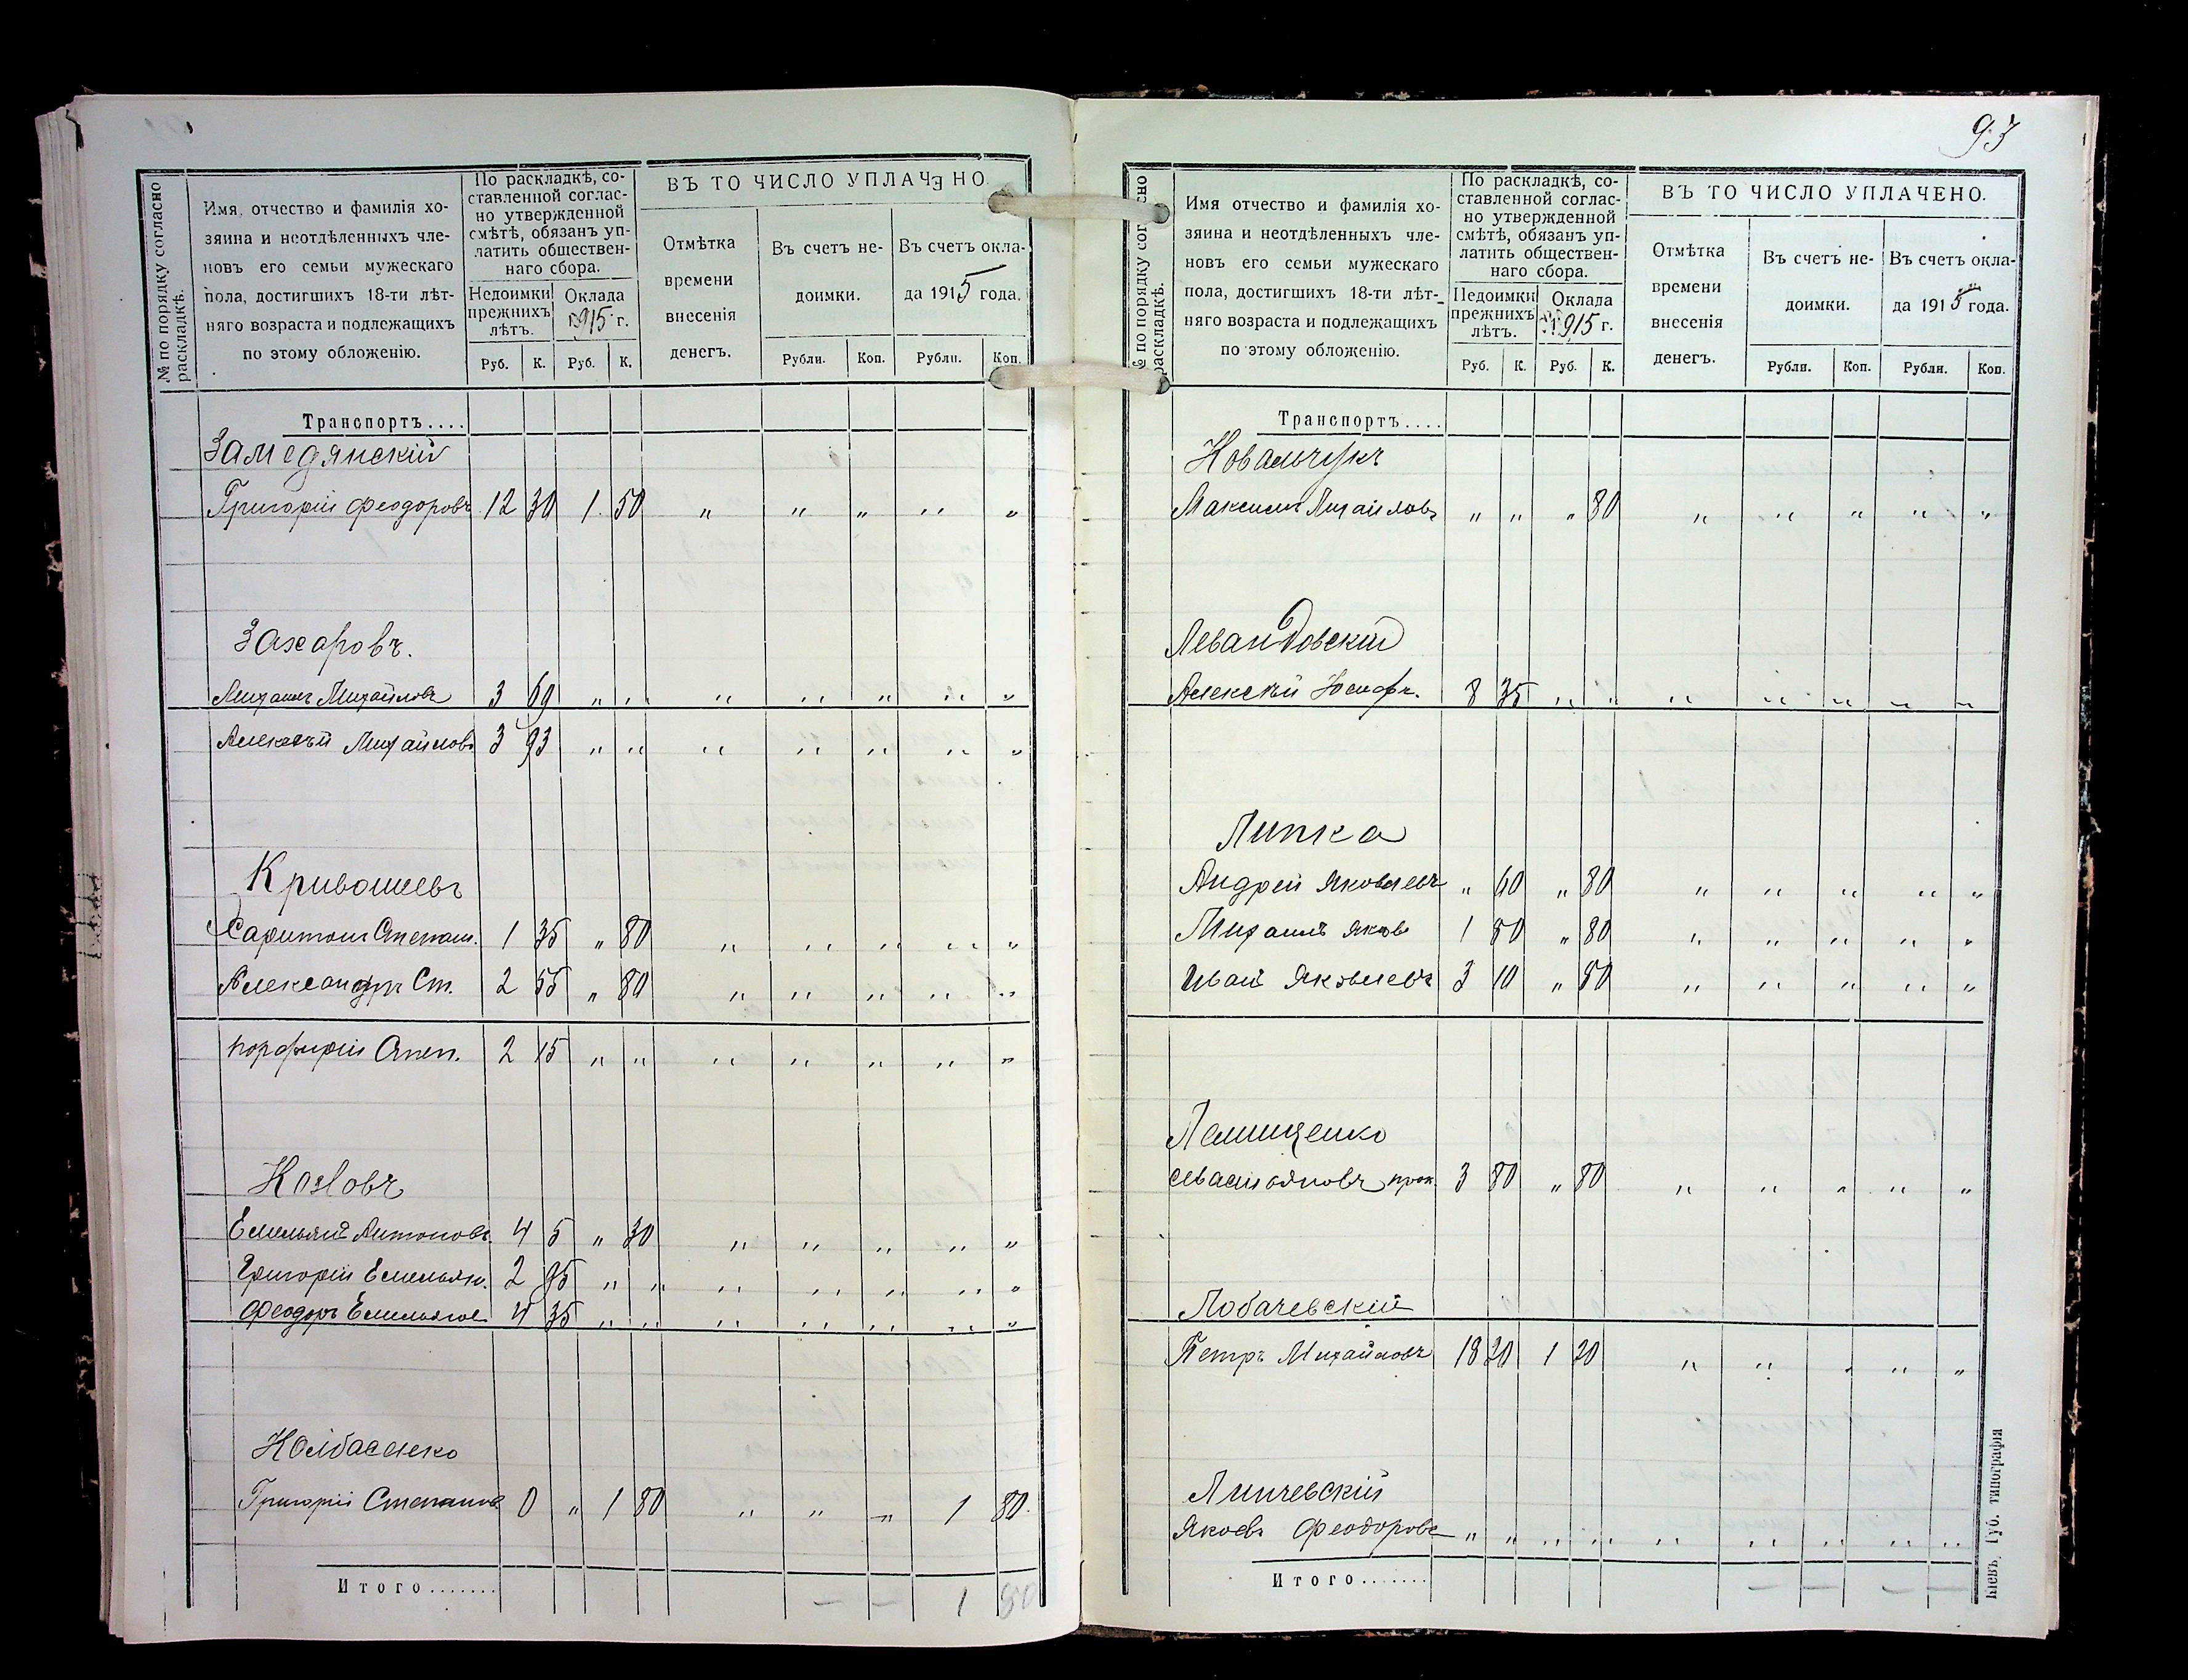 93
№ по порядку согласно раскладкѣ.
Имя, отчество и фамилія хо-
зяина и неотдѣленныхъ чле-
новъ его семьи мужескаго
пола, достигшихъ 18-ти лѣт-
няго возраста и подлежащихъ
по этому обложенію.
По раскладкѣ, со-
ставленной соглас-
но утвержденной
смѣтѣ, обязанъ уп-
латить обществен-
наго сбора.
Недоимки прежнихъ лѣтъ.
Оклада 1915 г.
Руб. К. Руб. К.
ВЪ ТО ЧИСЛО УПЛАЧЕНО.
Отмѣтка
времени
внесенія
денегъ.
Въ счетъ не-
доимки.
Рубли. Коп.
Въ счетъ окла-
да 1915 года.
Рубли. Коп.
Транспортъ....
Замедянскій
Григорій Феодоровъ 12 30 1 50 " " " " "
Захаровъ.
Михаилъ Михайловъ 3 69 " " " " " " "
Алексѣй Михайловъ 3 93 " " " " " " "
Кривошеевъ
Харитонъ Степан. 1 35 " 80 " " " " "
Александръ Ст. 2 55 " 80 " " " " "
Порфирій Степ. 2 15 " " " " " " "
Козловъ
Емельянъ Антоновъ 4 5 " 30 " " " " "
Григорій Емельян. 2 95 " " " " " " "
Феодоръ Емельянов 4 35 " " " " " " "
Колбасенко
Григорій Степанов 0 " 1 80 " " " 1 80.
Итого....... — — 1 80
№ по порядку согласно раскладкѣ.
Имя отчество и фамилія хо-
зяина и неотдѣленныхъ чле-
новъ его семьи мужескаго
пола, достигшихъ 18-ти лѣт-
няго возраста и подлежащихъ
по этому обложенію.
По раскладкѣ, со-
ставленной соглас-
но утвержденной
смѣтѣ, обязанъ уп-
латить обществен-
наго сбора.
Недоимки прежнихъ лѣтъ.
Оклада 1915 г.
Руб. К. Руб. К.
ВЪ ТО ЧИСЛО УПЛАЧЕНО.
Отмѣтка
времени
внесенія
денегъ.
Въ счетъ не-
доимки.
Рубли. Коп.
Въ счетъ окла-
да 1915 года.
Рубли. Коп.
Транспортъ....
Ковальчукъ
Максимъ Михайловъ " " " 80 " " " " "
Левандовскій
Алексѣй Іосиф. 8 35 " " " " " " "
Липка
Андрей Яковлевъ " 60 " 80 " " " " "
Михаилъ Яков 1 80 " 80 " " " " "
Иванъ Яковлевъ 3 10 " 80 " " " " "
Лемищенко
Севастьяновъ прок. 3 80 " 80 " " " " "
Лобачевскій
Петръ Михайловъ 18 20 1 20 " " " " "
Линчевскій
Яковъ Феодоровъ " " " " " " " " "
Итого....... — — — —
Кіевъ, Губ. типографія